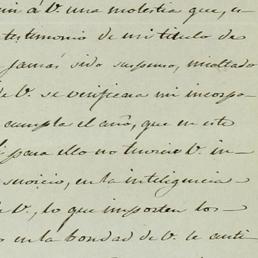 á V. una molestia que, u
testimonio de mi titulo de
jamás sido suspenso, ni
de V. se verificara mi incorpo
cumpla el año, que en este
para ello no tuviere V. in-
servicio, en la inteligencia
V., lo que importen los
en la bondad de V. le anti